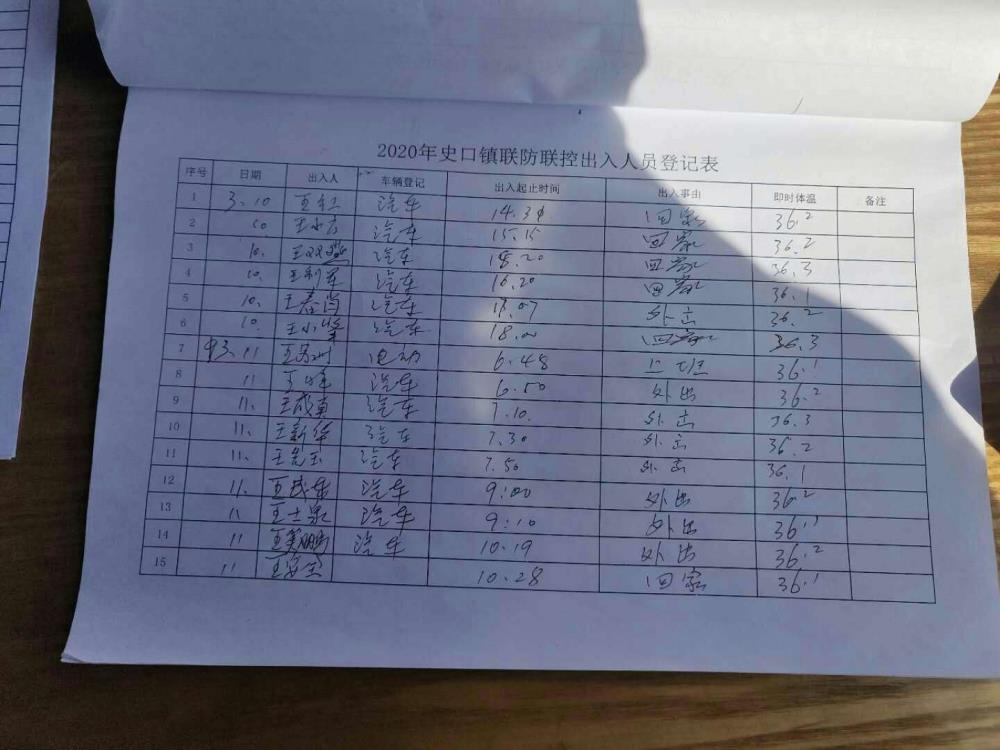 2020年史口镇联防联控出入人员登记表
序号 日期 出入人 车辆登记 出入起止时间 出入事由 即时体温 备注
1 3.10 王红 汽车 14.30 回家 36.2
2 10. 汽车 15.15 回家 36.2
3 10. 汽车 回家 36.3
4 10. 王利军 汽车 16.20 回家 36.1
5 10. 王春肖 汽车 外出 36.2
6 10. 汽车 18.00 回家 36.3
7 3.11 电动 6.48 上班 36.1
8 11 王峰 汽车 6.50 外出 36.2
9 11. 汽车 7.10. 外出 36.3
10 11. 王新华 汽车 7.30 外出 36.2
11 11. 汽车 7.50 外出 36.1
12 11. 汽车 9:00 外出 36.2
13 11 王士泉 汽车 9:10 外出 36.1
14 11 汽车 10.19 外出 36.2
15 11 10.28 回家 36.1